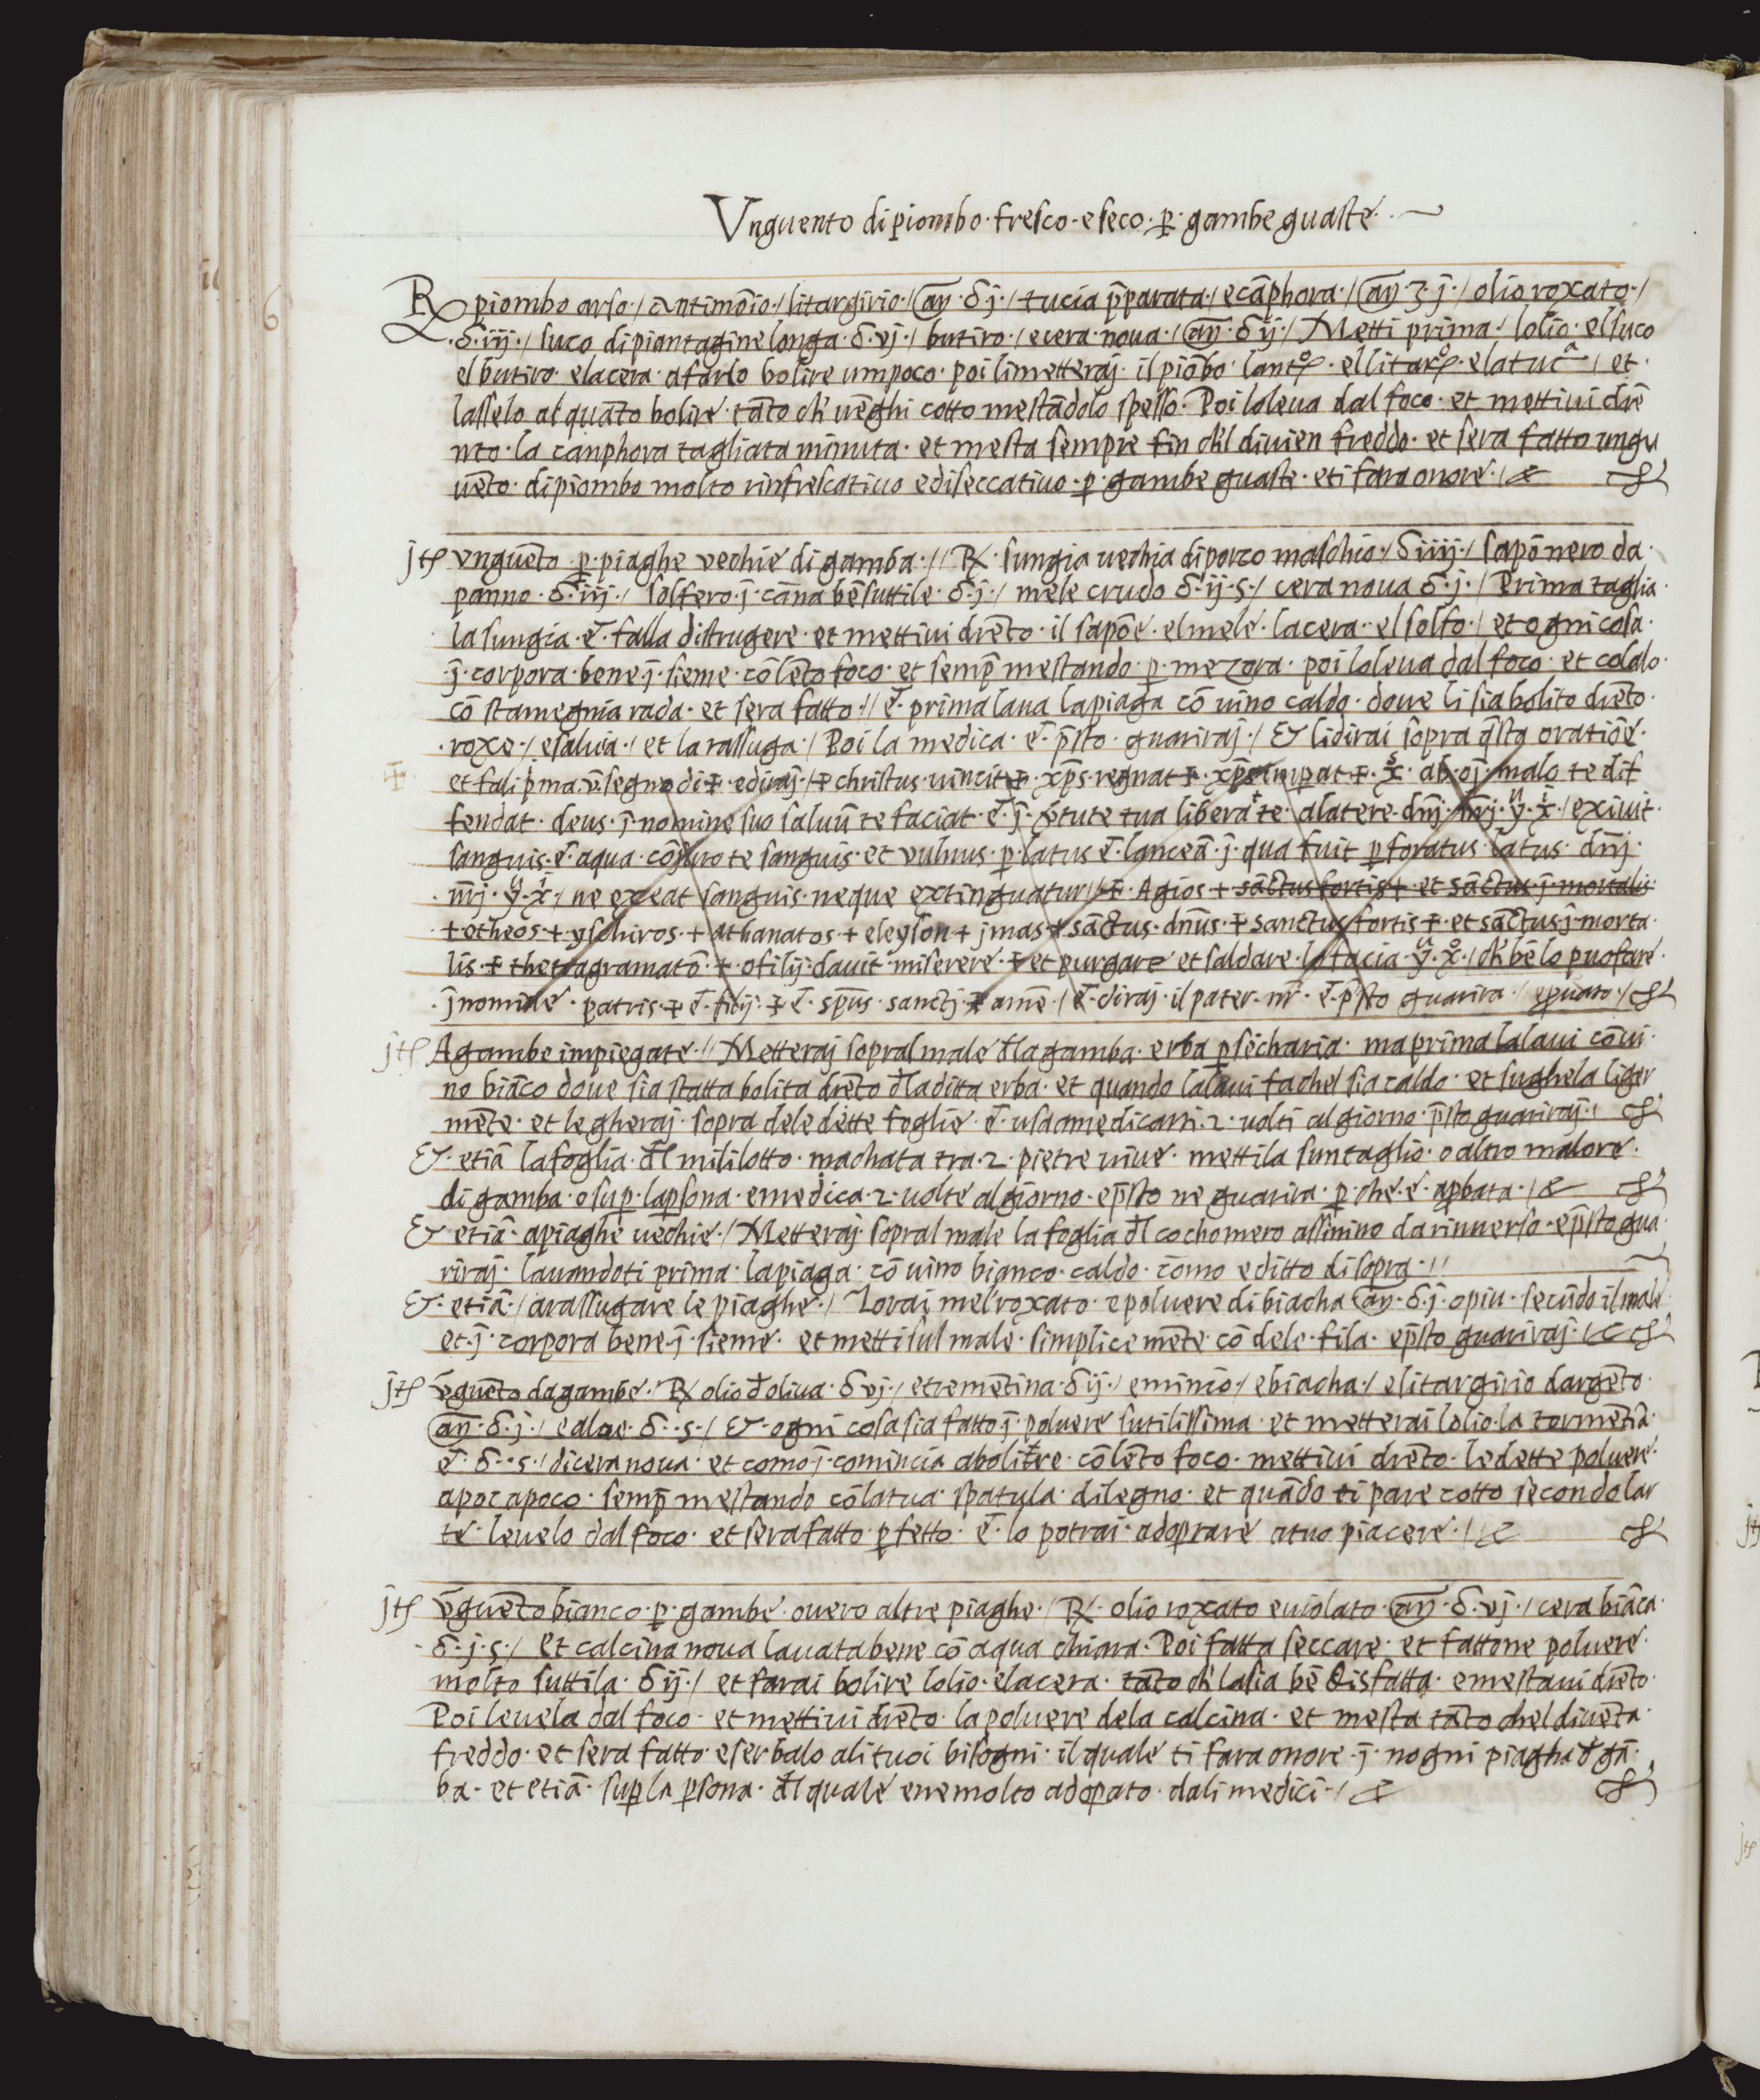 Vnguento di piombo · fresco · e seco · p̱ · gambe guaste ·
R̨ piombo arso ·/ antimōio ·/ litargirio ·/ añ · δ j ·/ tucia p̄parata ·/ e cāphora ·/ añ · ʒ · j ·/ olio roxato ·/
· δ · iij ·/ suco di piantagine longa · δ · vj ·/ butiro ·/ e cera noua ·/ añ · δ ij ·/ Metti prima ·/ lolio · el suco
el butiro · e la cera · a farlo bolire um poco · poi li metteraj · il piōbo · lantº · el litarº · e la tucª ·/ et ·
lasselo al quāto bolire · tāto ch' uēghi cotto mestādolo spesso · Poi lo leua dal foco · et mettiui drē
nto · la canphora tagliata minuta · et mesta sempre fin ch'l diuien freddo · et sera fatto ungu
uēto · di piombo molto rinfrescatiuo e diseccatiuo · p̱ · gambe guaste · e ti fara onore ·/ &
jtʃ vnguēto · p̱ · piaghe vechie di gamba ·// R̨ · sungia uechia di porco maschio ·/ δ iiij ·/ sapō nero da ·
panno · δ · iij ·/ solfero · j̄ · cāna bē suttile · δ · j ·/ mele crudo δ · ij · s ·/ cera noua δ · j ·/ Prima taglia ·
la sungia · ē · falla distrugere · et mettiui drēto · il sapōe · el mele · la cera · el solfo ·/ et ogni cosa ·
· j̄ · corpora · bene · j̄ · sieme · cō lēto foco · et semp̄ mestando · p̱ · mezora · poi lo leua dal foco · et colalo ·
cō stamegnia rada · et sera fatto ·// ē · prima laua la piaga cō uino caldo · doue li sia bolito drēto ·
· roxe ·/ e saluia ·/ et la rassuga ·/ Poi la medica · ē · p̄sto · guariraj ·/ & li dirai sopra q̄sta oratiōe ·
et fali p̄ma · ū · segno di ☩ · e diraj ·/ ☩ christus uincit ☩ · xp̄s · regnat ☩ · xp̄s imperat ☩ · x̊ · ab · oj̄ · malo te dif
fendat · deus · j̄ · nomine suo saluū te faciat · ē · j̄ · v̄tute tua libera te · a latere · dn̄j · n̄rj · y̋ · ẋ ·/ exiuit ·
sanguis · ē · aqua · cōjuro te sanguis · et vulnus · p̱ · latus ē · lanceā · j̄ · qua fuit p̱foratus latus · dn̄j ·
· n̄rj · y̋ · ẋ ·/ ne exeat sanguis · neque extinguatur // ☩ · Agios + sāctus fortis + · et sāctus · j̄ · mortalis ·
· + otheos · + yschiros · + athanatos · + eleyson + jmas + sāctus · dn̄us · ☩ sanctus fortis ☩ · et sāctus j̄ · morta ·
lis · ☩ thetragramatō · + · o filij · dauit miserere · ☩ et purgare et saldare · lo facia · y̋ · x̊ ·/ ch' bē lo puo fare ·
· j̄ nomine · patris · ☩ ē · filij · ☩ ē · sp̄us · sanctj · ☩ amē ·/ ē · diraj · il pater · nr̄ · ē · p̄sto guarira ·/ e pruato ·/
jtʃ A gambe impiegate ·// Metteraj sopral male đ la gamba · erba p̱sēcharia · ma prima la laui cō ui ·
no biāco doue sia statta bolita drēto đ la ditta erba · et quando la laui fa chel sia caldo · et sughela liger
mēte · et le gheraj · sopra dele dette foglie · ē · usa a medicarti · 2 · uolti al giorno · p̄sto guariraj ·/
& · etiā la foglia · đl mililotto · machata tra · 2 · pietre uiue · mettila sun taglio · o altro malore ·
di gamba · o sup̱ · la p̱sona · e medica · 2 · uolte al giorno · e p̄sto ne guarira · p̱ · che · ē · ap̱bata ·/ &
& etiā · a piaghe uechie ·/ Metteraj · sopral male la foglia đl cochomero assinino da rinuerso · e p̄sto gua
riraj · lauandoti prima · la piaga · cō uino bianco · caldo · como e ditto di sopra · //
& · etiā ·/ a rassugare le piaghe ·/ Torai mel roxato · e poluere di biacha añ · δ · j · o piu · secūdo il male
et · j̄ · corpora bene · j̄ · sieme · et metti sul male · simplice mēte · cō dele · fila · e p̄sto guariraj ·/
jtʃ ūguēto da gambe ·/ R̨ olio đ oliua · δ vj ·/ e tremētina · δ ij ·/ e minio ·/ e biacha ·/ e litargirio dargēto ·
añ · δ · j ·/ e aloe · δ · · s ·/ & · ogni cosa sia fatto j̄ · poluere sutilissima · et metterai lolio · la tormētīa ·
ē · δ · · s ·/ di cera noua · et como j̄ · comincia a bolire · cō lēto foco · mettiui drēto · le dette poluere ·
a poc a poco · semp̄ mestando cō la tua · spatula · di legno · et quādo ti pare cotto secondo lar
te · leuelo dal foco · et sera fatto p̱fetto · ē · lo potrai · adoprare a tuo piacere ·/ &
jtʃ ūguēto bianco · p̱ · gambe · ouero altre piaghe ·/ R̨ · olio roxato e uiolato · añ · δ · vj ·/ cera biāca ·
· δ · j · s ·/ et calcina noua lauata bene cō aqua chiara · Poi fatta seccare · et fattone poluere ·
molto suttila · δ ij ·/ et farai bolire lolio · e la cera · tāto ch' la sia bē disfatta · e mestaui drēto ·
Poi leuela dal foco · et mettiui drēto · la poluere de la calcina · et mesta tāto chel diuēta ·
freddo · et sera fatto · e serbalo ali tuoi bisogni · il quale ti fara onore · j̄ · nogni piagha đ gā ·
ba · et etiā · sup̱ la p̱sona · đl quale ene molto adop̱ato · dali medici ·/ &